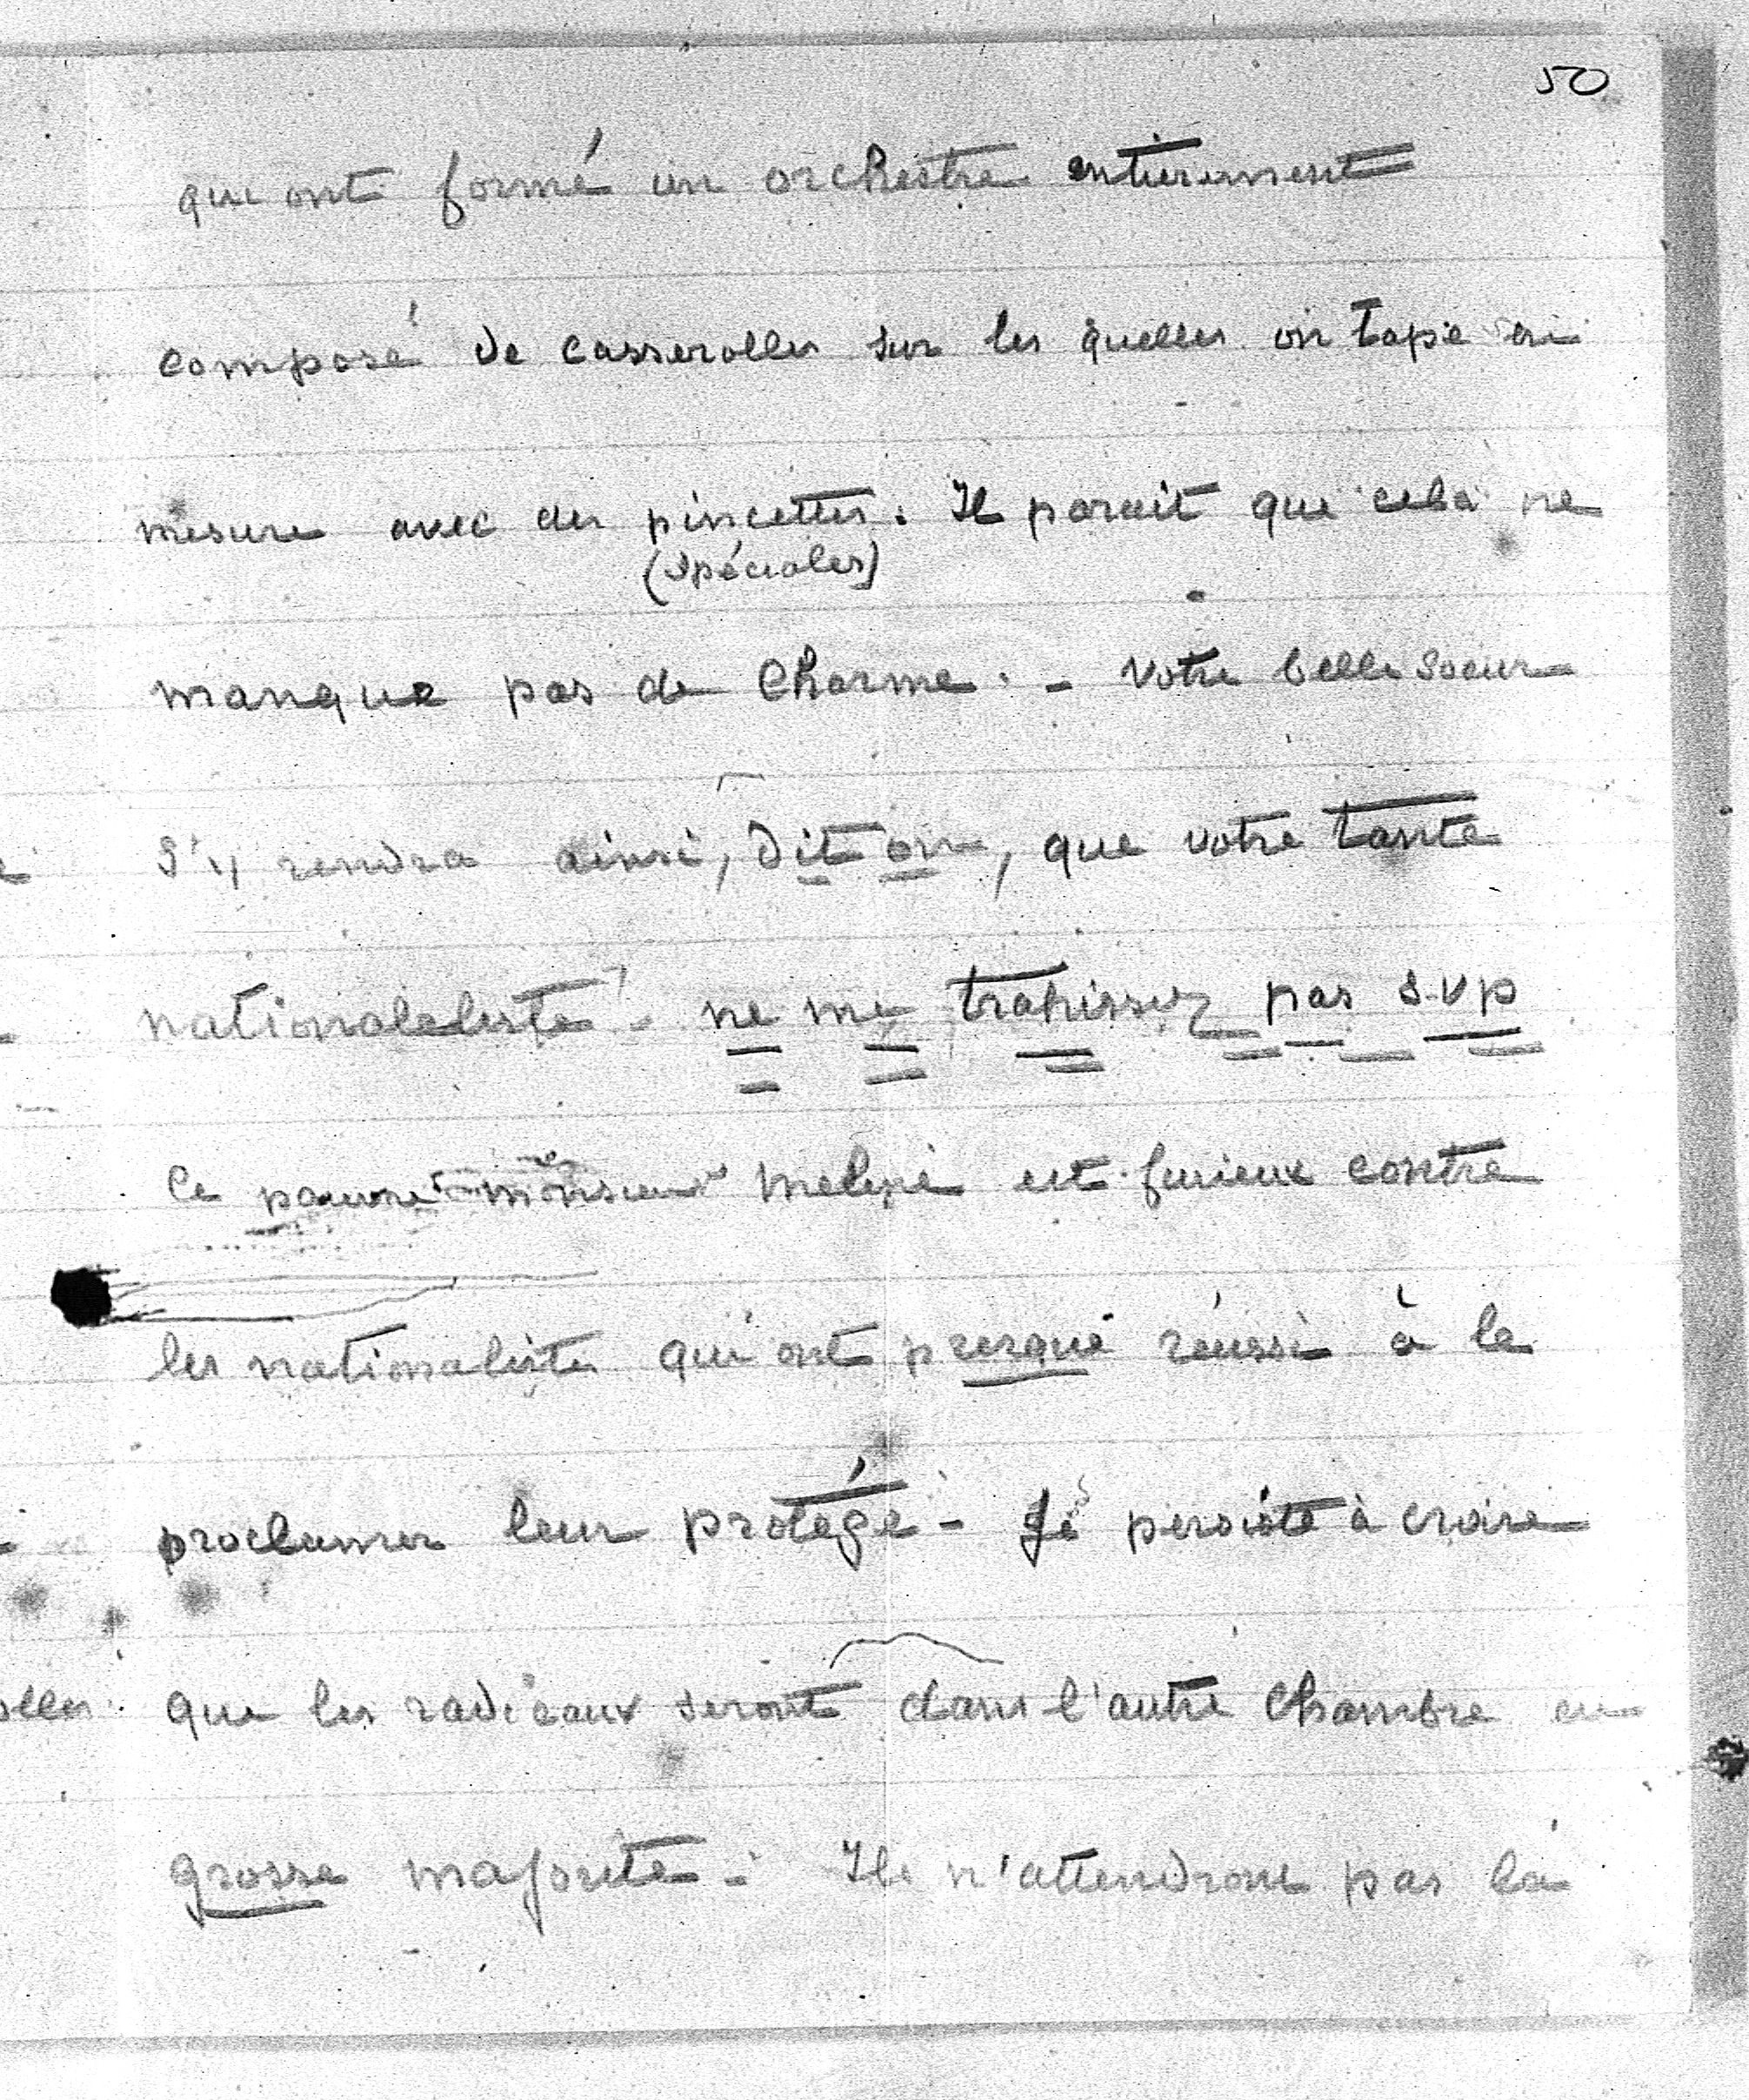 50
qui ont formé un orchestre entierement
composé de casserolles sur les quelles on tape en
mesure avec des pincettes. Il parait que cela ne
(spéciales)
manque pas de charme. - votre belle soeur
s'y rendra ainsi, dit on, que votre tante
nationaleliste - ne me trahissez pas s.v.p
Ce pauvre monsieur meline est furieux contre
les nationalistes qui ont presque réussi à le
proclamer leur protégé - Je persiste à croire
que les radicaux seront dans l'autre chambre en
grosse majorité - Ils n'attendront pas la